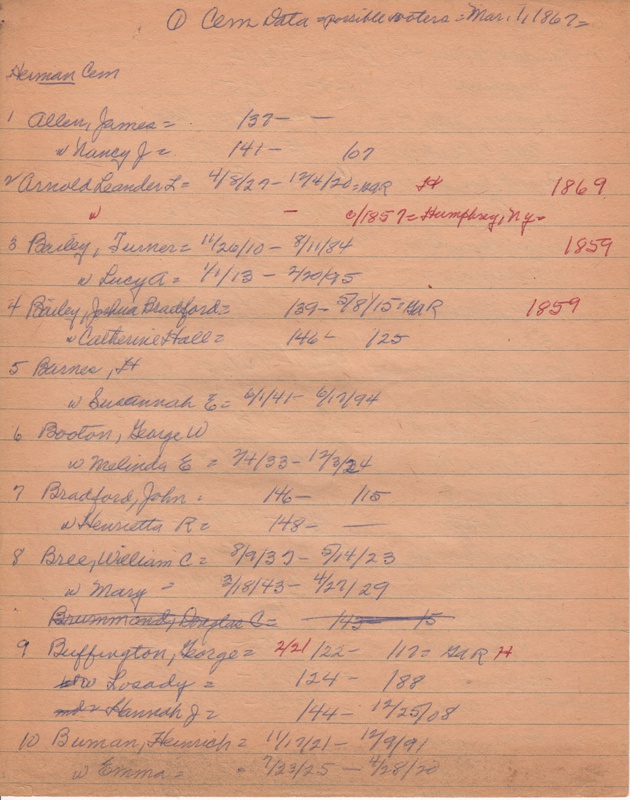 ① Cem Data = possible voters = Mar. 1, 1867 =
Herman Cem
1 Allen, James = /37 - -
w Nancy J = /41 - /07
2 Arnold Leander L = 4/8/27 - 12/4/20 = GAR H 1869
w - c/1857 = Humphrey, Ny =
3 Bailey, Turner = 11/26/10 - 8/11/84 1859
w Lucy A = 1/1/13 - 2/20/95
4 Bailey, Joshua Bradford = /39 - 5/8/15 = GAR 1859
w Catherine Hall = /46 - /25
5 Barnes, H
w Susannah E = 6/1/41 - 6/17/94
6 Booton, George W
w Melinda E = 2/4/33 - 12/3/24
7 Bradford, John = /46 - /15
w Henrietta R = /48 - -
8 Bree, William C = 8/9/37 - 5/14/23
w Mary = 3/18/43 - 4/27/29
Brummond, Douglas C = /45 /15
9 Buffington, George = 2/21 /22 - /17 = GAR H
w Losady = /24 - /88
Hannah J = /44 - 12/25/08
10 Buman, Heinrich = 11/17/21 - 12/9/91
w Emma = = 7/23/25 - 4/28/20